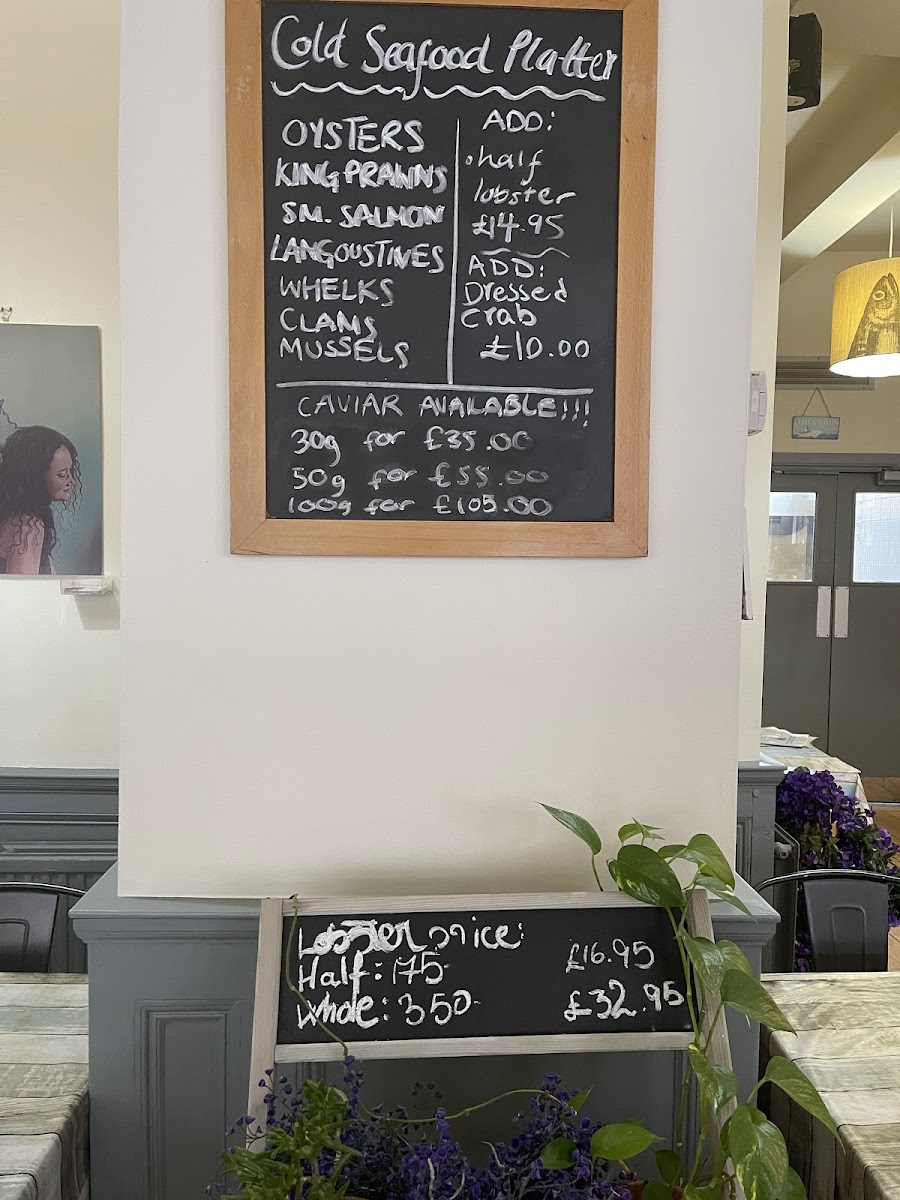 Cold Seafood Platter
OYSTERS
KING PRAWNS
SM. SALMON
LANGOUSTINES
WHELKS
CLAMS
MUSSELS
ADD:
half
lobster
£14.95
ADD:
Dressed
crab
£10.00
CAVIAR AVAILABLE!!!
30g for £35.00
50g for £55.00
100g for £105.00
Lobster price:
Half: 175 £16.95
Whole: 350 £32.95